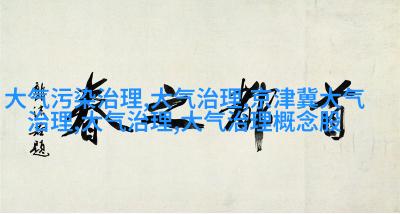 大气污染治理,大气治理,京津冀大气
治理,大气治理,大气治理概念股
首都之春